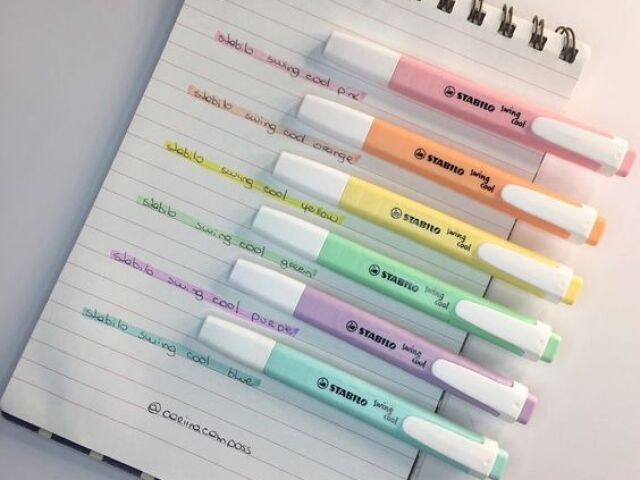 stabilo swing cool pink
STABILO swing cool
stabilo swing cool orange
STABILO swing cool
stabilo swing cool yellow
STABILO swing cool
stabilo swing cool green
STABILO swing cool
stabilo swing cool purple
STABILO swing cool
stabilo swing cool blue
STABILO swing cool
@cariinacamposs